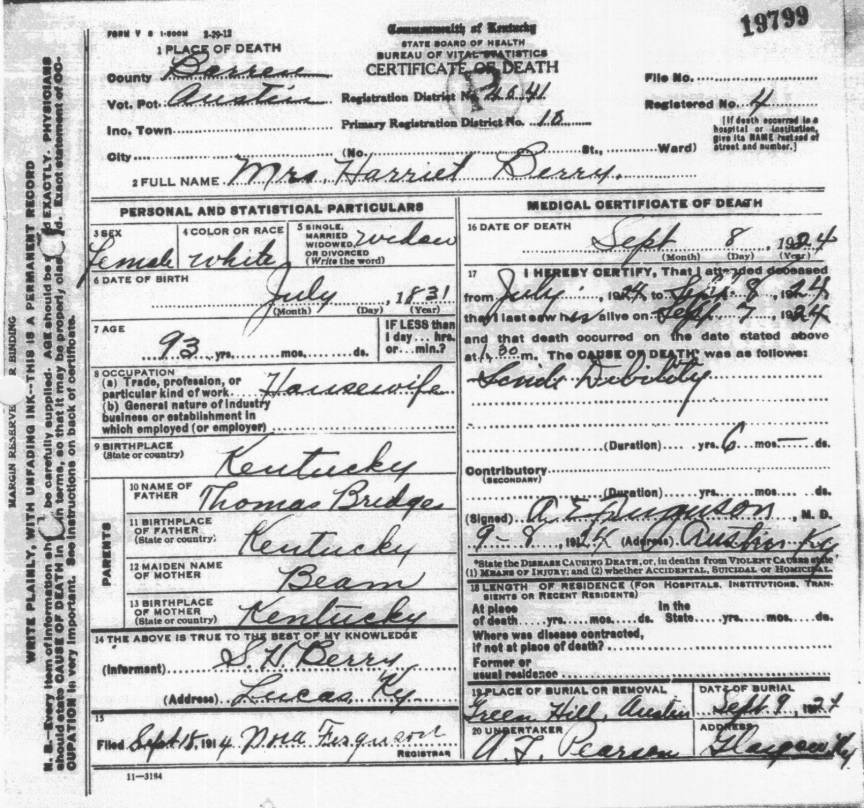 FORM V S 1-500M 2-29-12
Commonwealth of Kentucky
STATE BOARD OF HEALTH
BUREAU OF VITAL STATISTICS
CERTIFICATE OF DEATH
19799
1 PLACE OF DEATH
County Barren
Vot. Pct. Austin
Inc. Town
City
Registration District No. 4641
Primary Registration District No. 18
(No. St., Ward)
File No.
Registered No. 4
[If death occurred in a
hospital or institution,
give its NAME instead of
street and number.]
2 FULL NAME Mrs. Harriet Berry.
PERSONAL AND STATISTICAL PARTICULARS
3 SEX
Female
4 COLOR OR RACE
White
5 SINGLE,
MARRIED
WIDOWED
OR DIVORCED
(Write the word)
widow
6 DATE OF BIRTH
July, 1831
(Month) (Day) (Year)
7 AGE
93 yrs. mos. ds.
IF LESS than
1 day hrs.
or min.?
8 OCCUPATION
(a) Trade, profession, or
particular kind of work Housewife
(b) General nature of industry
business or establishment in
which employed (or employer)
9 BIRTHPLACE
(State or country)
Kentucky
PARENTS
10 NAME OF
FATHER
Thomas Bridges
11 BIRTHPLACE
OF FATHER
(State or country)
Kentucky
12 MAIDEN NAME
OF MOTHER
Beam
13 BIRTHPLACE
OF MOTHER
(State or country)
Kentucky
14 THE ABOVE IS TRUE TO THE BEST OF MY KNOWLEDGE
(Informant) S. H. Berry
(Address) Lucas Ky
15
Filed Sept 15, 1914 Nora Ferguson
REGISTRAR
11-3184
MEDICAL CERTIFICATE OF DEATH
16 DATE OF DEATH
Sept 8, 1924
(Month) (Day) (Year)
17 I HEREBY CERTIFY, That I attended deceased
from July, 1924, to Sept 8, 1924
that I last saw alive on Sept 7, 1924
and that death occurred on the date stated above
at 30 m. The CAUSE OF DEATH* was as follows:
Debility
(Duration) yrs. 6 mos. — ds.
Contributory
(SECONDARY)
(Duration) yrs. mos. ds.
(Signed) A E Ferguson, M. D.
9-8, 1924 (Address) Austin Ky
*State the DISEASE CAUSING DEATH, or, in deaths from VIOLENT CAUSES state
(1) MEANS OF INJURY; and (2) whether ACCIDENTAL, SUICIDAL or HOMICIDAL.
18 LENGTH OF RESIDENCE (FOR HOSPITALS, INSTITUTIONS, TRAN-
SIENTS OR RECENT RESIDENTS)
At place In the
of death yrs. mos. ds. State yrs. mos. ds.
Where was disease contracted,
if not at place of death?
Former or
usual residence
19 PLACE OF BURIAL OR REMOVAL
Green Hill, Austin
DATE OF BURIAL
Sept 9, 1924
20 UNDERTAKER
A. F. Pearson
ADDRESS
Glasgow Ky
MARGIN RESERVED BINDING
WRITE PLAINLY, WITH UNFADING INK--THIS IS A PERMANENT RECORD
N. B.--Every item of information be carefully supplied. AGE should be EXACTLY. PHYSICIANS
should state CAUSE OF DEATH in terms, so that it may be properly Exact statement of OC-
CUPATION is very important. See instructions on back of certificate.